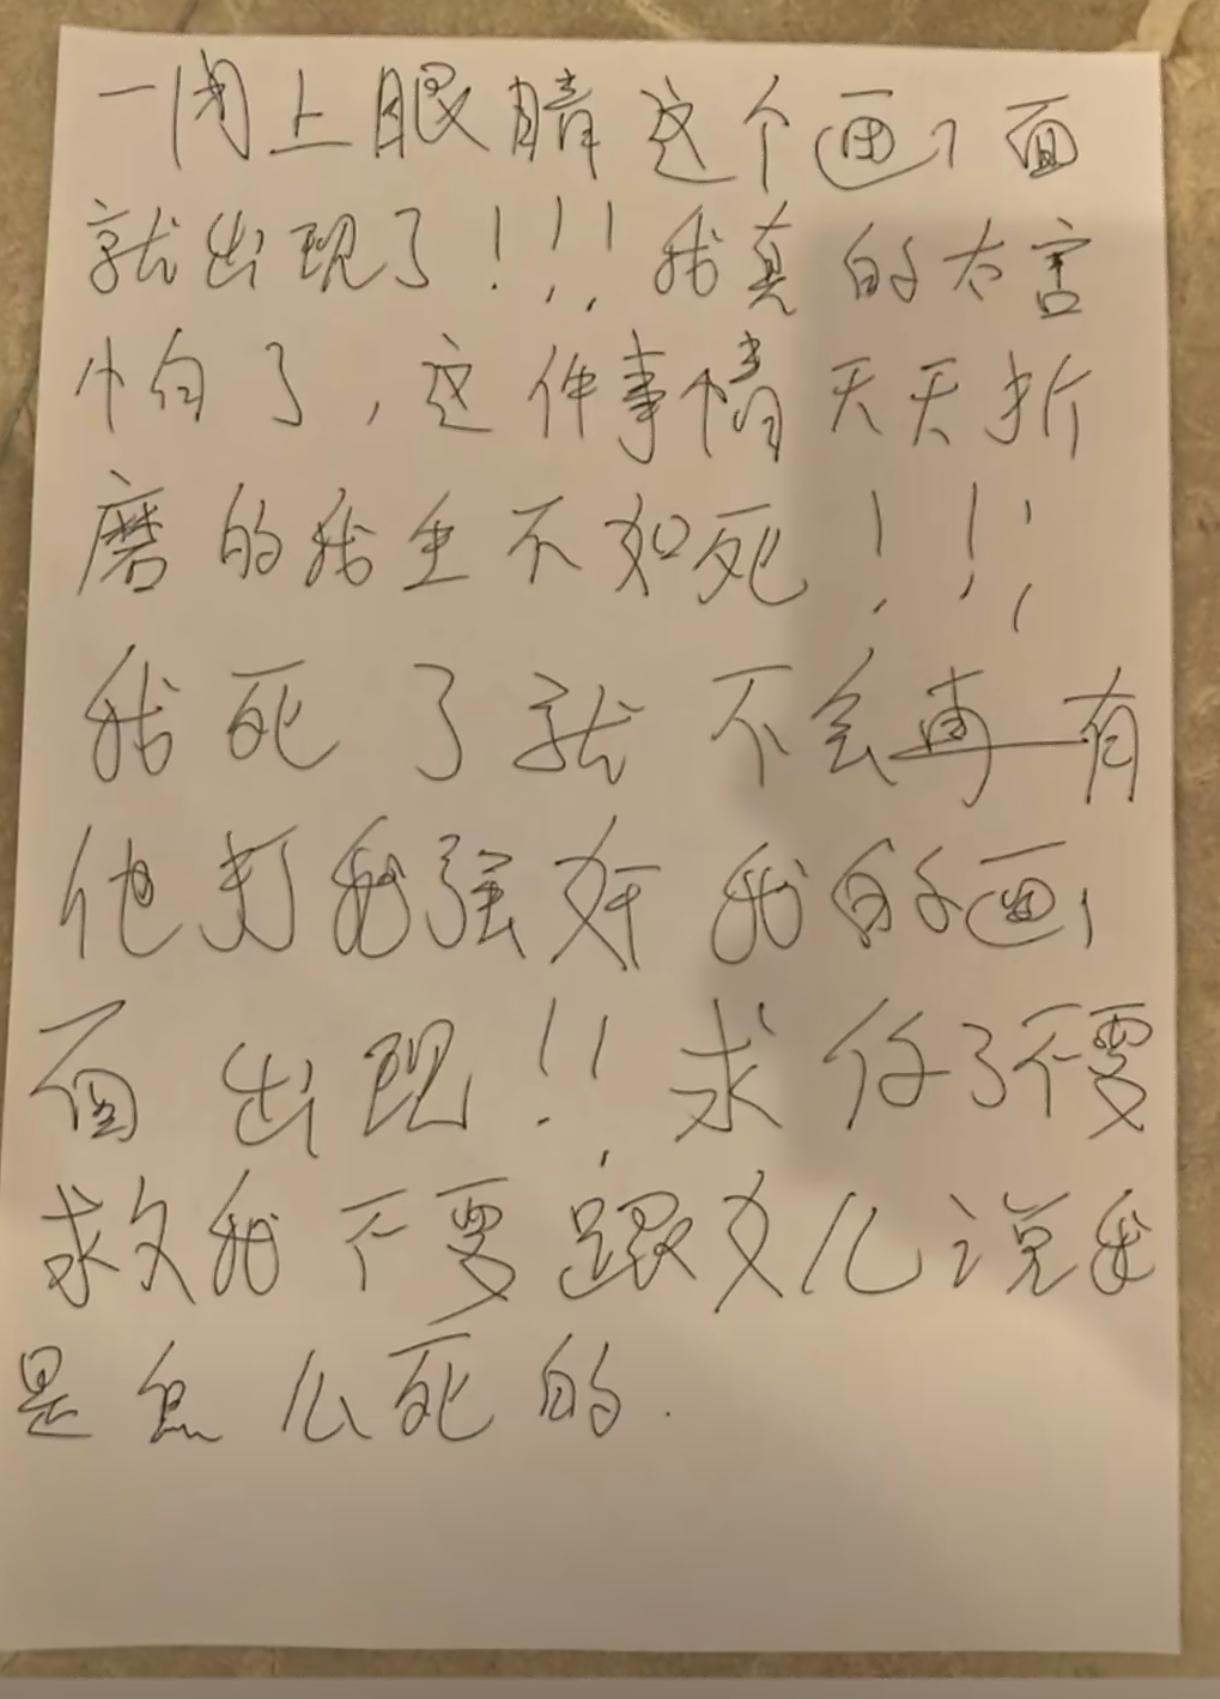 一闭上眼睛这个画面
就出现了！！！我真的太害
怕了，这件事情天天折
磨的我生不如死！！！
我死了就不会再有
他打我强奸我的画
面出现！！求 了不要
救我不要跟女儿说我
是怎么死的.